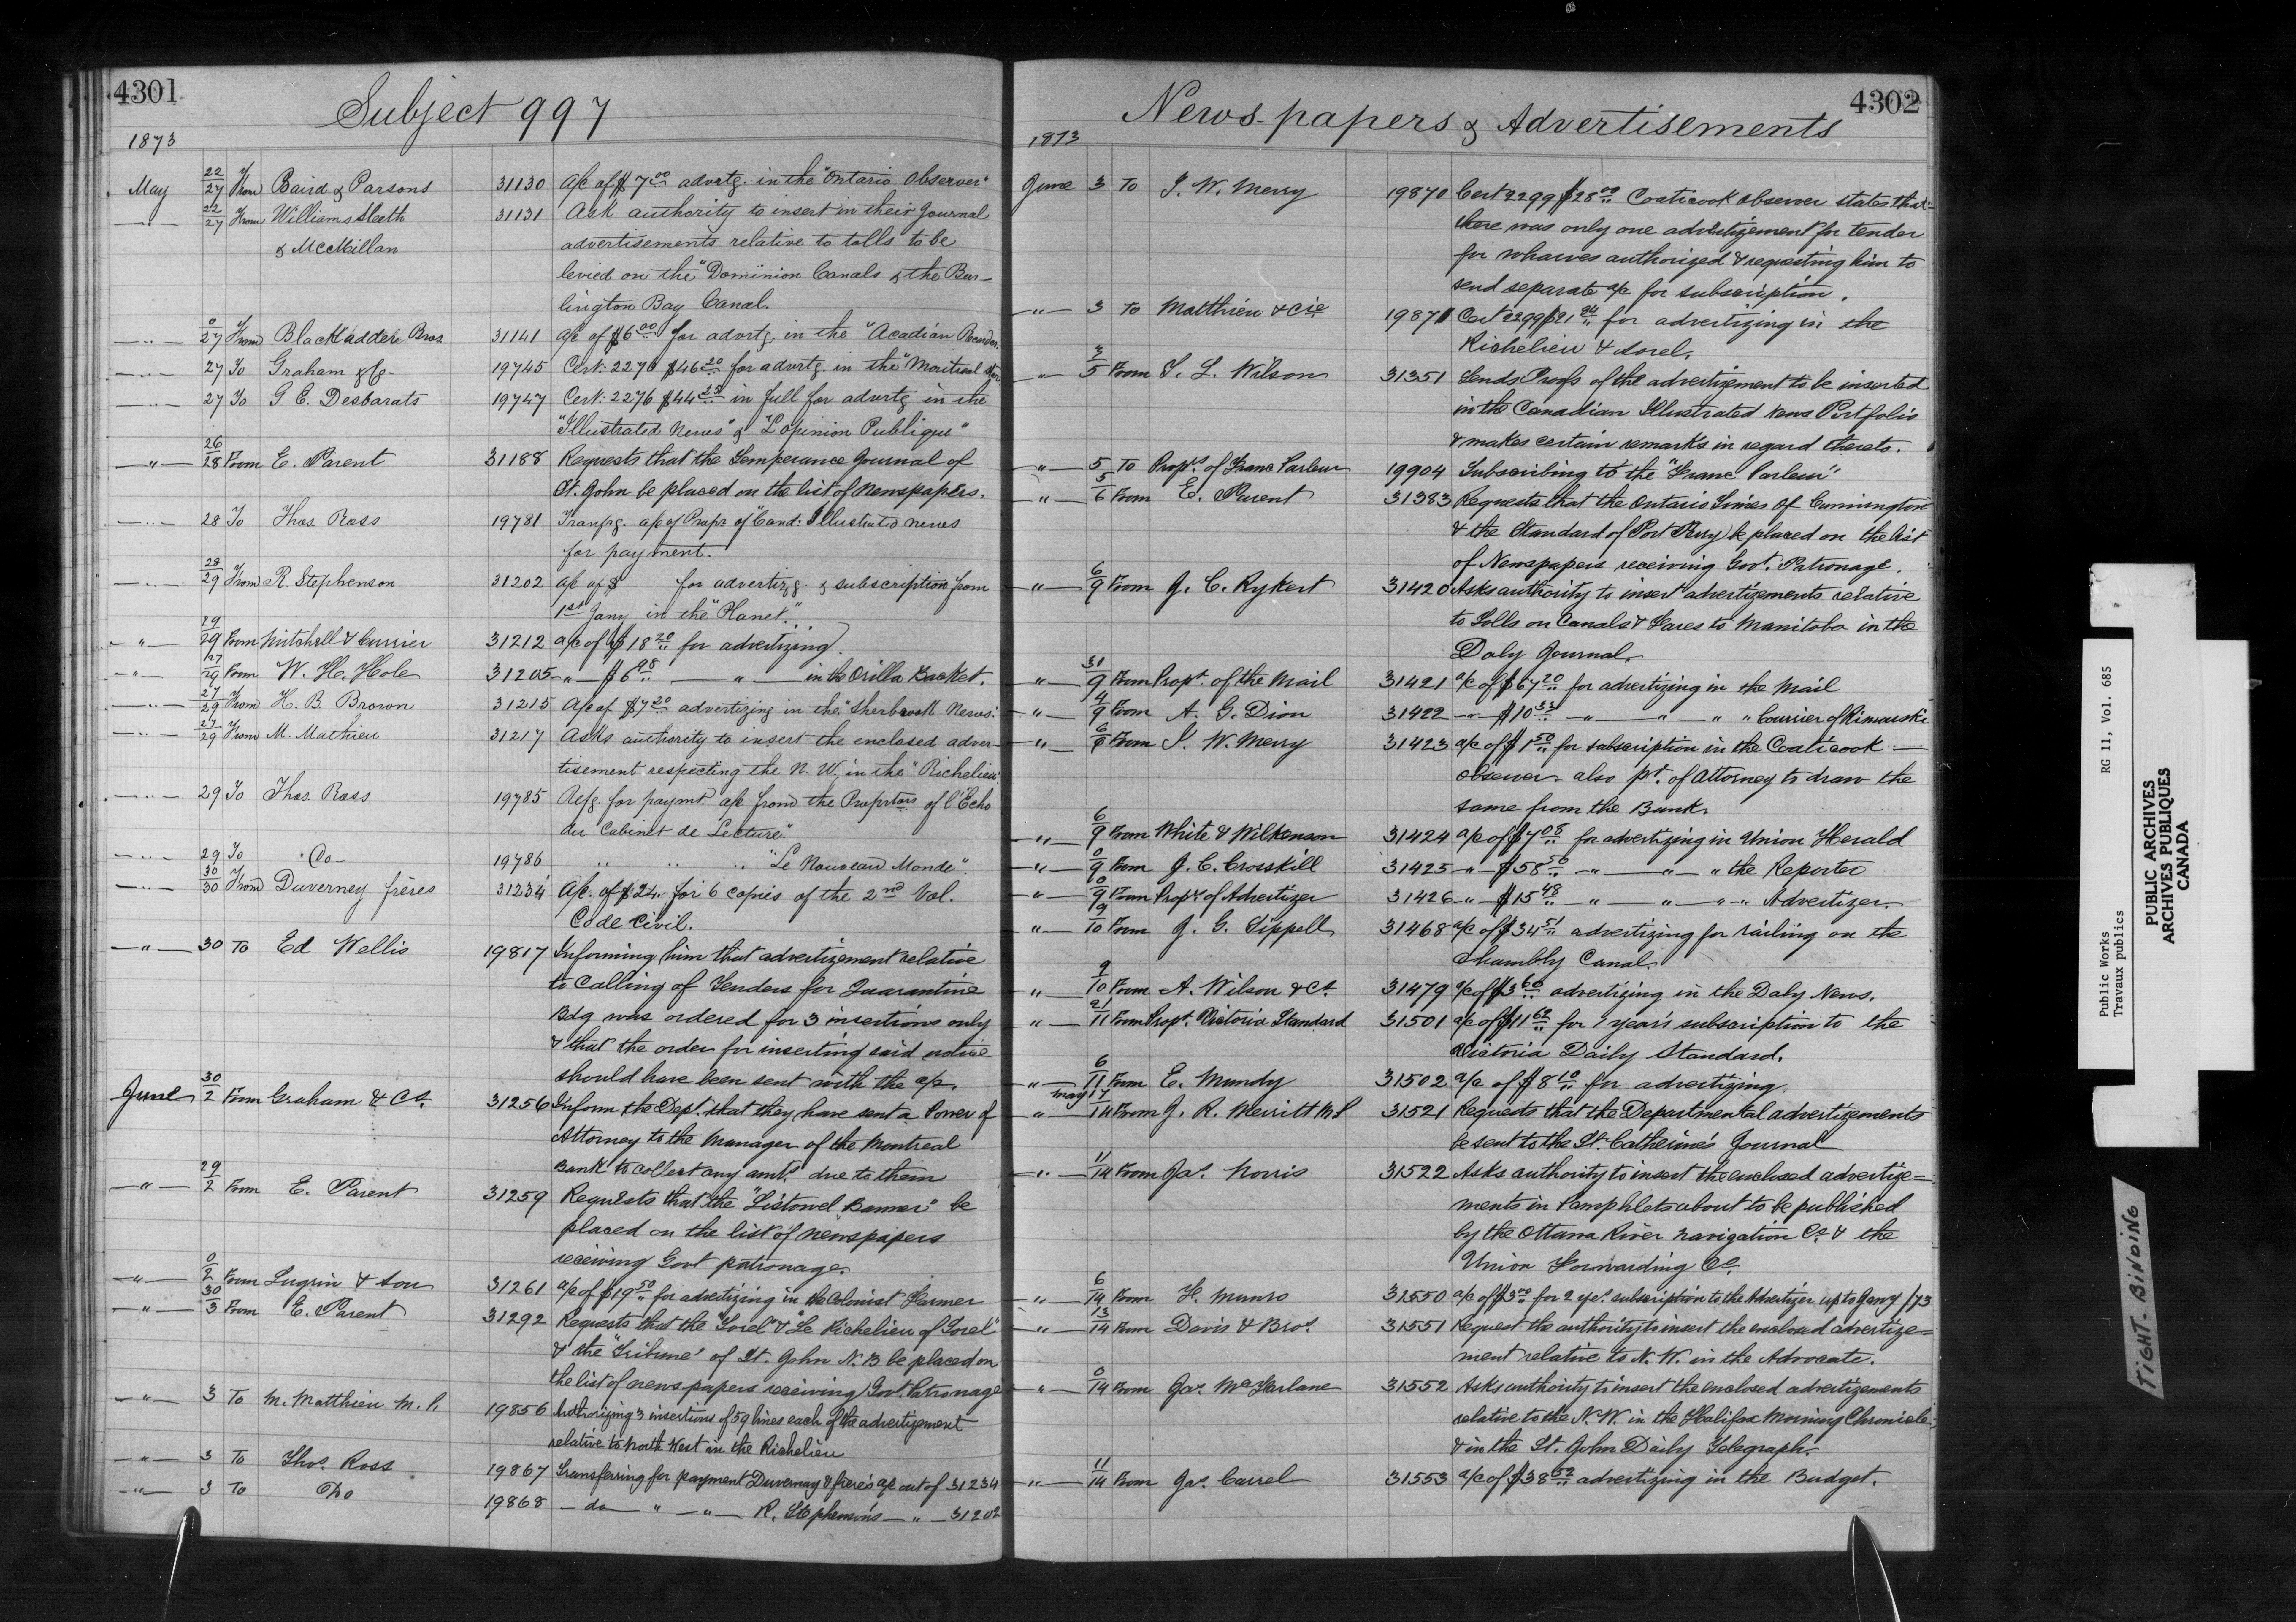 4301
Subject 997
1873
May 22/27 From Baird & Parsons 31130 A/c of $7.00 advrtg. in the "Ontario Observer"
" 22/27 From Williams Sleeth 31131 Ask authority to insert in their Journal
& McMillan advertisements relative to tolls to be
levied on the "Dominion Canals & the Bur-
lington Bay Canal.
" 0/27 From Blackadder Bros. 31141 a/c of $6.00 for advrtg. in the "Acadian Recorder
" 27 To Graham & Co 19745 Cert. 2276 $46.20 for advrtg. in the "Montreal Star
" 27 To G. E. Desbarats 19747 Cert. 2276 $44.25 in full for advrtg in the
"Illustrated News" & "L'opinion Publique"
" 26/28 From E. Parent 31188 Requests that the Temperance Journal of
St. John be placed on the list of Newspapers.
" 28 To Thos. Ross 19781 Tranfrg. a/c of Propr. of "Cand: Illustrated news
for payment.
" 28/29 From R. Stephenson 31202 a/c of $ for advertizg. & subscription from
1st Jany in the "Planet"
" 29/29 From Mitchell & Currier 31212 a/c of $18.20 for advertizing.
" 27/29 From W. H. Hole 31205 " $6.98 " in the Orilla Packet.
" 27/29 From H. B. Brown 31215 A/c of $7.20 advertizing in the "Sherbrook News.
" 27/29 From M. Mathieu 31217 Asks authority to insert the enclosed adver-
tisement respecting the N. W. in the "Richelieu.
" 29 To Thos. Ross 19785 Refg. for paymt. a/c from the Proprtors of l'Echo
du "Cabinet de Lecture."
" 29 To Do 19786 " " " "Le Nouveau Monde".
" 30/30 From Duverney frères 31234 A/c. of $24. for 6 copies of the 2nd Vol.
Code Civil.
" 30 To Ed Wellis 19817 Informing him that advertizement relative
to Calling of Tenders for Quarantine
Bdg was ordered for 3 insertions only
& that the order for inserting said notice
should have been sent with the a/c.
June 30/2 From Graham & Co. 31256 Inform the Dept. that they have sent a Power of
Attorney to the Manager of the Montreal
Bank to collect any amt. due to them
" 29/2 From E. Parent 31259 Requests that the "Listowel Banner" be
placed on the list of newspapers
receiving Govt patronage.
" 0/2 From Lugrin & Son 31261 a/c of $19.50 for advertizing in the Colonist Farmer
" 30/3 From E. Parent 31292 Requests that the "Sorel" & "Le Richelieu of Sorel"
& the "Tribune" of St. John N. B be placed on
the list of news papers receiving Govt. Patronage
" 3 To M. Matthieu M. P. 19856 Authorizing 3 insertions of 59 lines each of the advertizement
relative to North West in the Richelieu
" 3 To Thos. Ross 19867 Transferring for payment Duvernay & frères a/c out of 31234
" 3 To Do 19868 - do - " - " - R. Stephenson's - " - 31202
4302
News-papers & Advertisements
1873
June 3 To J. W. Merry 19870 Cert 2299 $28.00 Coaticook Observer states that
there was only one advertizement for tender
for wharves authorized & requesting him to
send separate a/c for subscription.
" 3 To Matthieu & Cie 19871 Cert 2299 $21.80 for advertizing in the
Richelieu & Sorel.
" 3/5 From T. L. Wilson 31351 Sends Proofs of the advertizement to be inserted
in the Canadian Illustrated News Portfolio
& makes certain remarks in regard thereto.
" 5 To Proprs. of Franc Parleur 19904 Subscribing to the "Franc Parleur"
" 5/6 From E. Parent 31383 Requests that the Ontario Times of Cunnington
& the Standard of Port Perry be placed on the list
of Newspapers receiving Govt. Patronage.
" 6/9 From J. C. Rykert 31420 Asks authority to insert advertizements relative
to Tolls on Canals & Fares to Manitoba in the
Daly Journal.
" 31/9 From Propr. of the Mail 31421 a/c of $67.20 for advertizing in the Mail
" 4/9 From A. G. Dion 31422 " $10.33 " " " " Courrier of Rimouski
" 6/9 From J. W. Merry 31423 a/c of $1.50 for subscription in the Coaticook
observer also pr. of Attorney to draw the
same from the Bank.
" 6/9 From White & Wilkenson 31424 a/c of $7.08 for advertizing in Union Herald
" 0/9 From J. C. Crosskill 31425 " $58.50 " " " the Reporter
" 10/9 From Propr. of Advertizer 31426 " $15.48 " " " " Advertizer.
" 9/10 From J. G. Sippell 31468 a/c of $34.51 advertizing for railing on the
Chambly Canal.
" 9/10 From A. Wilson & Co. 31479 a/c of $3.60 advertizing in the Daly News.
" 21/11 From Propr. Victoria Standard 31501 a/c of $11.62 for 1 year's subscription to the
Victoria Daily Standard.
" 6/11 From E. Mundy 31502 a/c of $8.10 for advertizing.
" May 17/14 From J. R. Merritt M P 31521 Requests that the Departmental advertizements
be sent to the St. Catherine's Journal
" 11/14 From Jas. Norris 31522 Asks authority to insert the enclosed advertize=
ments in Pamphlets about to be published
by the Ottawa River Navigation Co. & the
Union Forwarding Co.
" 6/14 From H. Munro 31550 a/c of $3.00 for 2 yrs. subscription to the Advertizer up to Jany /73
" 13/14 From Davis & Bros. 31551 Request the authority to insert the enclosed advertize=
ment relative to N. W. in the Advocate.
" 0/14 From Jas. McFarlane 31552 Asks authority to insert the enclosed advertizements
relative to the N. W. in the Halifax Morning Chronicle
& in the St. John Daily Telegraph.
" 11/14 From Jas. Carrel 31553 a/c of $38.52 advertizing in the Budget.
Public Works RG 11, Vol. 685
Travaux publics
PUBLIC ARCHIVES
ARCHIVES PUBLIQUES
CANADA
TIGHT-BINDING